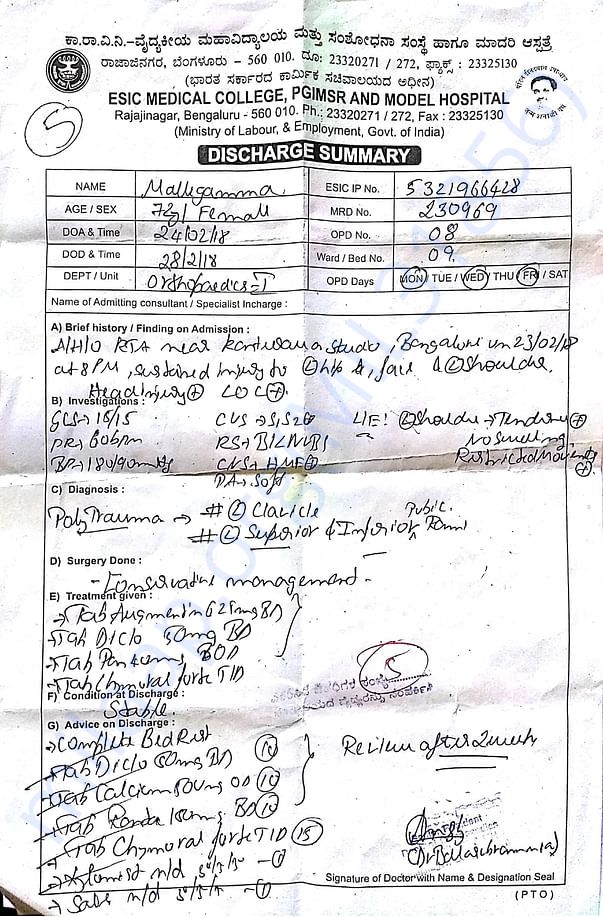 ಕಾ.ರಾ.ವಿ.ನಿ.-ವೈದ್ಯಕೀಯ ಮಹಾವಿದ್ಯಾಲಯ ಮತ್ತು ಸಂಶೋಧನಾ ಸಂಸ್ಥೆ ಹಾಗೂ ಮಾದರಿ ಆಸ್ಪತ್ರೆ
ರಾಜಾಜಿನಗರ, ಬೆಂಗಳೂರು - 560 010. ದೂ: 23320271 / 272, ಫ್ಯಾಕ್ಸ್ : 23325130
(ಭಾರತ ಸರ್ಕಾರದ ಕಾರ್ಮಿಕ ಸಚಿವಾಲಯದ ಅಧೀನ)
ESIC MEDICAL COLLEGE, PGIMSR AND MODEL HOSPITAL
Rajajinagar, Bengaluru - 560 010. Ph.: 23320271 / 272, Fax : 23325130
(Ministry of Labour, & Employment, Govt. of India)
5
DISCHARGE SUMMARY
NAME Mallegamma ESIC IP No. 5321966428
AGE / SEX Female MRD No. 230969
DOA & Time 24/02/18 OPD No. 08
DOD & Time 28/2/18 Ward / Bed No. 09
DEPT / Unit Orthopaedics-I OPD Days MON / TUE / WED / THU / FRI / SAT
Name of Admitting consultant / Specialist Incharge :
A) Brief history / Finding on Admission :
A/H/O RTA near Studio, Bangalore on 23/02/18
at 8 PM, sustained injury to (L) hip, face & (L) shoulder
Head injury (+) LOC (+)
B) Investigations :
GCS → 15/15 CVS → S1S2 (+) L/E: (L) shoulder → Tenderness (+)
PR → 80bpm RS → No swelling
BP → 180/90mmHg CNS → HMF (+) Restricted movements (+)
PA → Soft
C) Diagnosis :
Poly Trauma → # (L) Clavicle
# (L) Superior & Inferior Pubic Rami
D) Surgery Done :
- Conservative management -
E) Treatment given :
→ Tab Augmentin 625mg BD
→ Tab Diclo 50mg BD
→ Tab Pan 40mg
→ Tab Chymoral forte TID
F) Condition at Discharge :
Stable
G) Advice on Discharge :
→ Complete Bed Rest
→ Tab Diclo 50mg BD (10)
→ Tab Calcium 500mg OD (10)
→ Tab 150mg BD (10)
→ Tab Chymoral forte TID (15)
Review after 2 weeks
5
Signature of Doctor with Name & Designation Seal
(PTO)